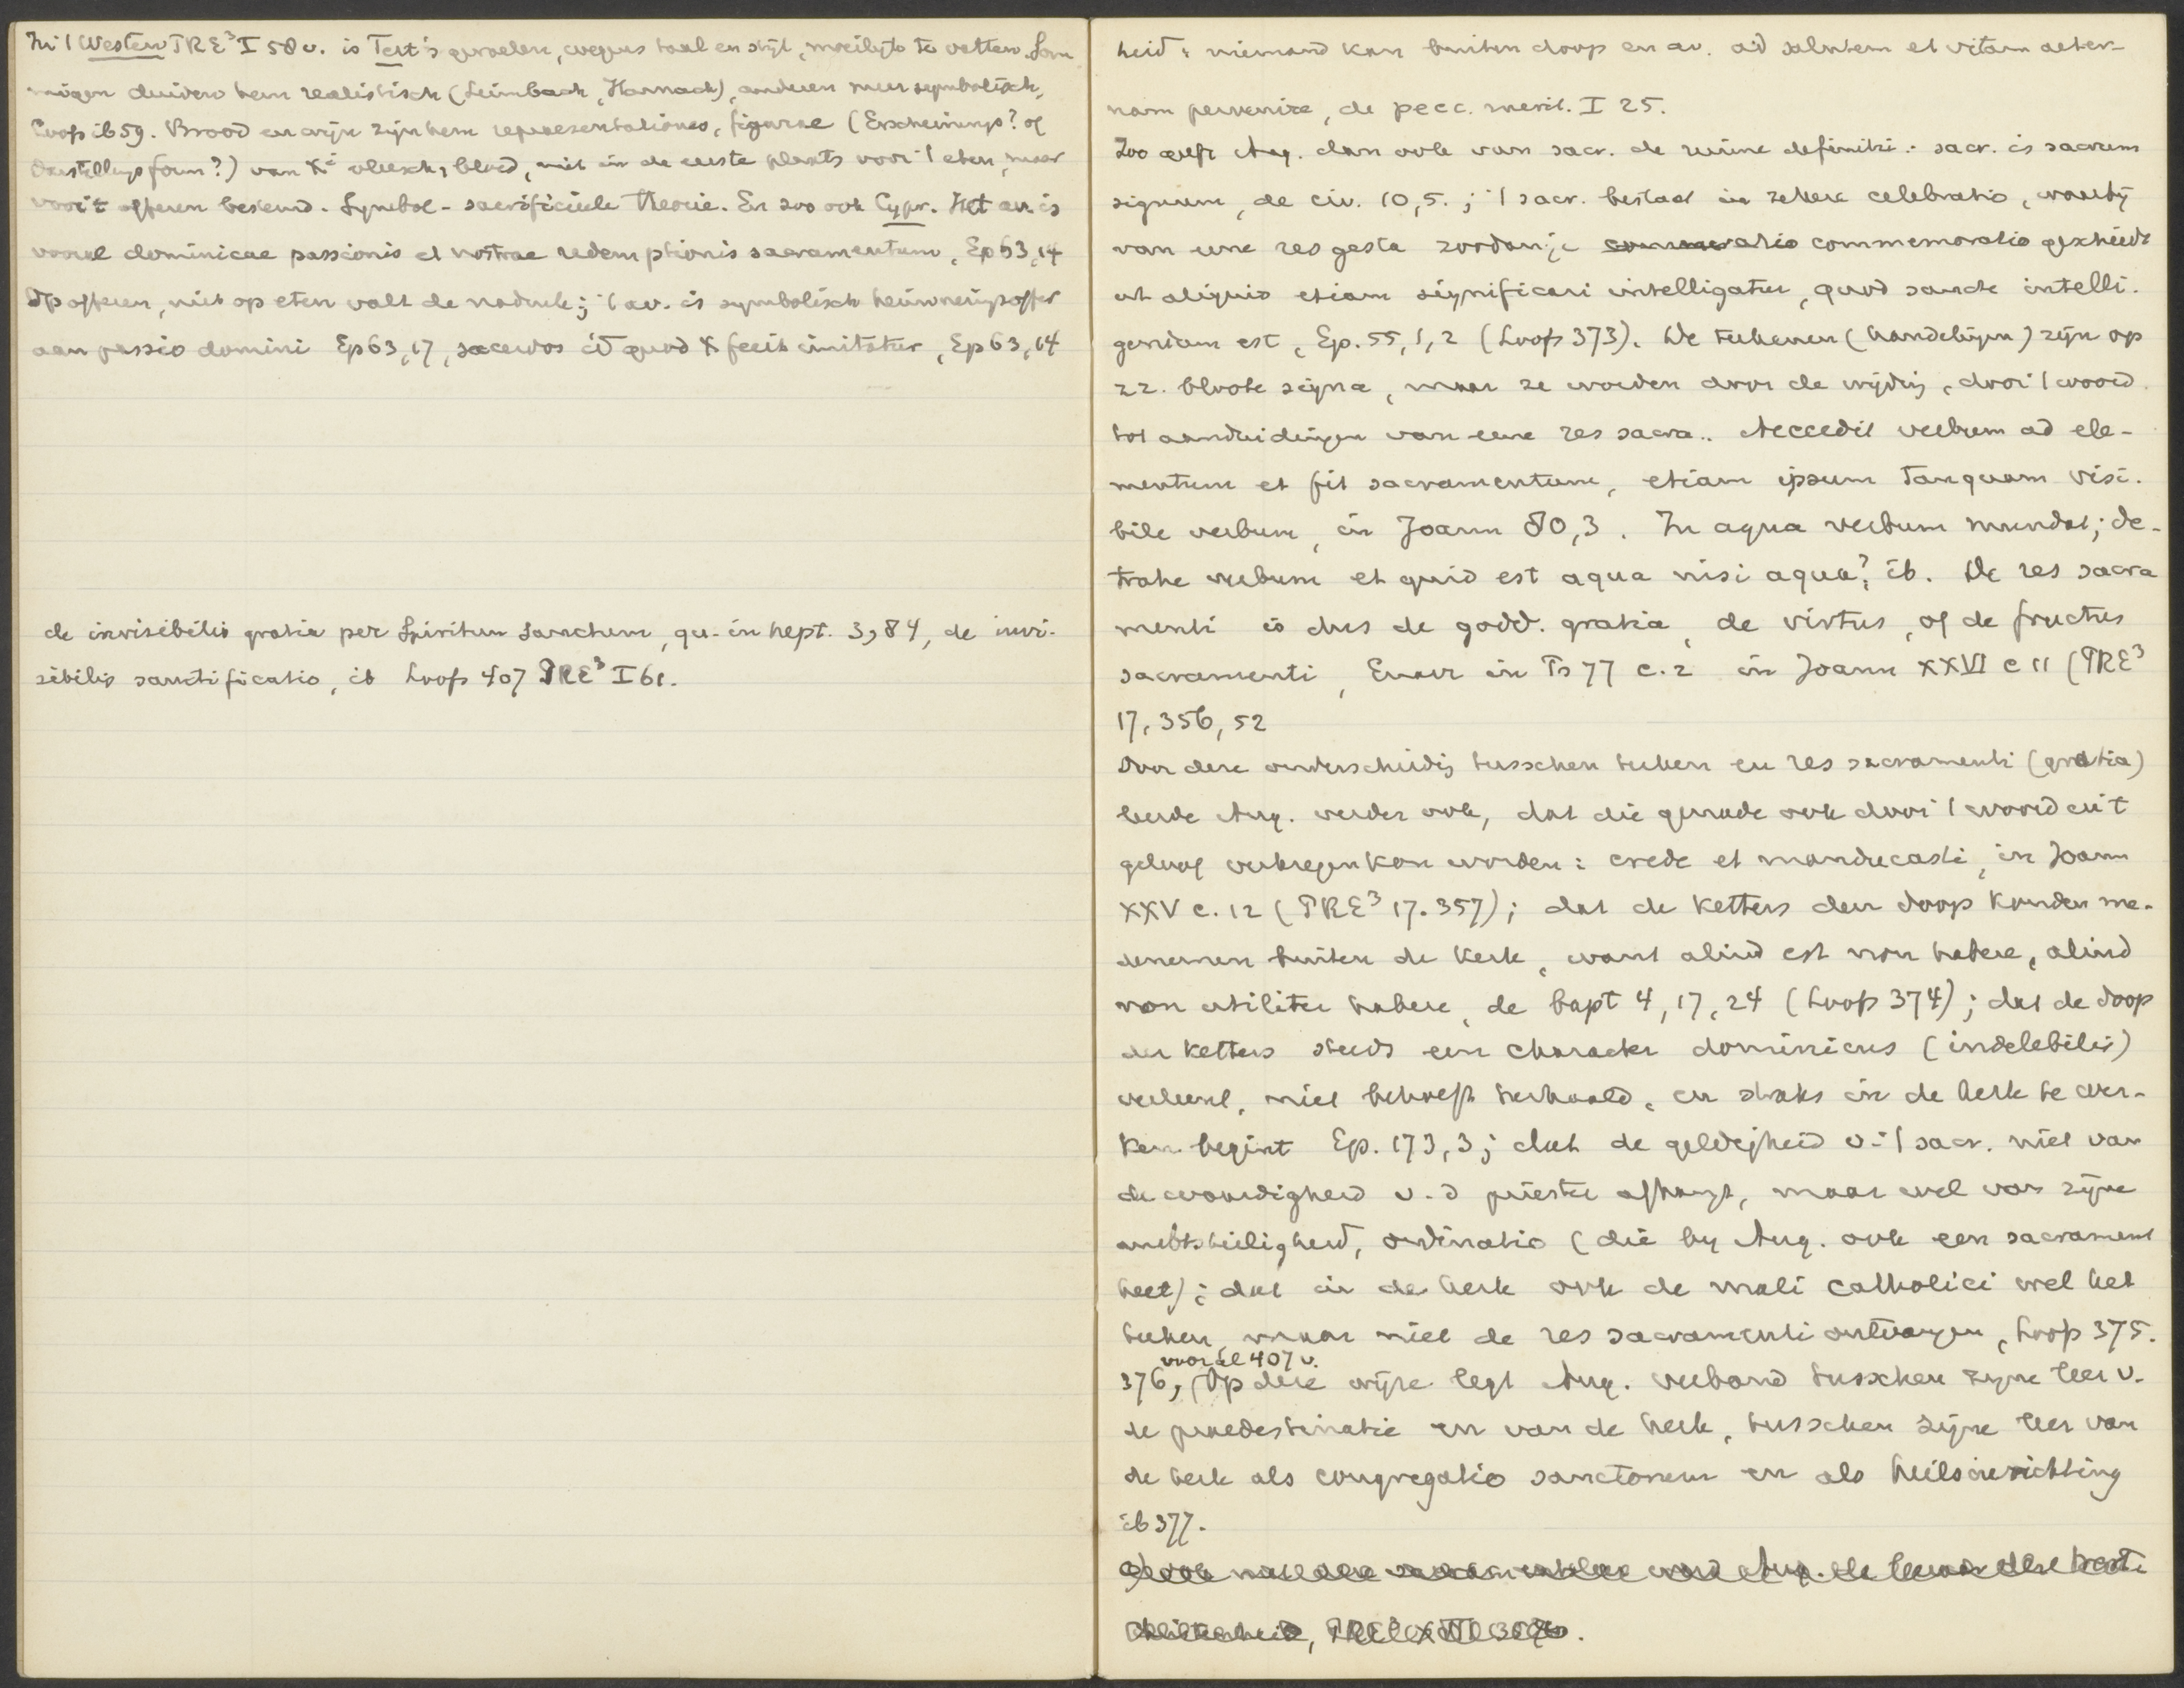 In 't Westen PRE³ I 58 v. is Tert's gevoelen, wegens taal en stijl, moeilijk te vatten. Som
migen duiden hem realistisch (Leimbach, Harnack), anderen meer symbolisch,
Loofs ib 59. Brood en wijn zijn hem repraesentationes, figurae (Erscheinungs? of
Darstellungsform?) van X<sup>i</sup> vleesch, bloed, niet in de eerste plaats voor 't eten, maar
voor 't offeren bestemd. Symbol-sacrificieele theorie. En zoo ook Cypr. Het av. is
vooral dominicae passionis et nostrae redemptionis sacramentum, Ep 63,14
Op offeren, niet op eten valt de nadruk; 't av. is symbolisch herinneringsoffer
aan passio domini Ep 63,17, sacerdos id quod X fecit imitatur, Ep 63,14
de invisibilis gratia per Spiritum Sanctum, qu. in hept. 3,84, de invi-
sibilis sanctificatio, ib Loofs 407 PRE³ I 61.
heid: niemand kan buiten doop en av. ad salutem et vitam aeter-
nam pervenire, de pecc. merit. I 25.
Zoo geeft Aug. dan ook van sacr. de ruime definitie: sacr. is sacrum
signum, de civ. 10,5.; 't sacr. bestaat in zekere celebratio, waarbij
van eene res gesta zoodanige commemoratio geschiedt
ut aliquid etiam significari intelligatur, quod sancte intelli-
gendum est, Ep. 55,1,2 (Loofs 373). De teekenen (handelingen) zijn op
z.z. bloote signa, maar ze worden door de wijding, door 't woord
tot aanduidingen van eene res sacra.. Accedit verbum ad ele-
mentum et fit sacramentum, etiam ipsum tanquam visi-
bile verbum, in Joann 80,3. In aqua verbum mundat; de-
trahe verbum et quid est aqua nisi aqua? ib. De res sacra
menti is dus de godd. gratia, de virtus, of de fructus
sacramenti, Enarr in Ps 77 c. 2 in Joann XXVI c 11 (PRE³
17, 356, 52
Door deze onderscheiding tusschen teeken en res sacramenti (gratia)
leerde Aug. verder ook, dat die genade ook door 't woord en 't
geloof verkregen kan worden: crede et manducasti, in Joann
XXV c. 12 (PRE³ 17. 357); dat de ketters den doop konden me-
denemen buiten de kerk, want aliud est non habere, aliud
non utiliter habere, de bapt 4, 17, 24 (Loofs 374); dat de doop
der ketters steeds een character dominicus (indelebilis)
verleent, niet behoeft herhaald, en straks in de kerk te wer-
ken begint Ep. 173,3; dat de geldigheid v. 't sacr. niet van
de waardigheid v. d priester afhangt, maar wel van zijne
ambtsheiligheid, ordinatio (die by Aug. ook een sacrament
heet); dat in de kerk ook de mali catholici wel het
teeken, maar niet de res sacramenti ontvangen, Loofs 375.
vooral 407 v.
376, Op deze wijze legt Aug. verband tusschen zijne leer v.
de praedestinatie en van de kerk, tusschen zijne leer van
de kerk als congregatio sanctorum en als heilsinrichting
ib 377.